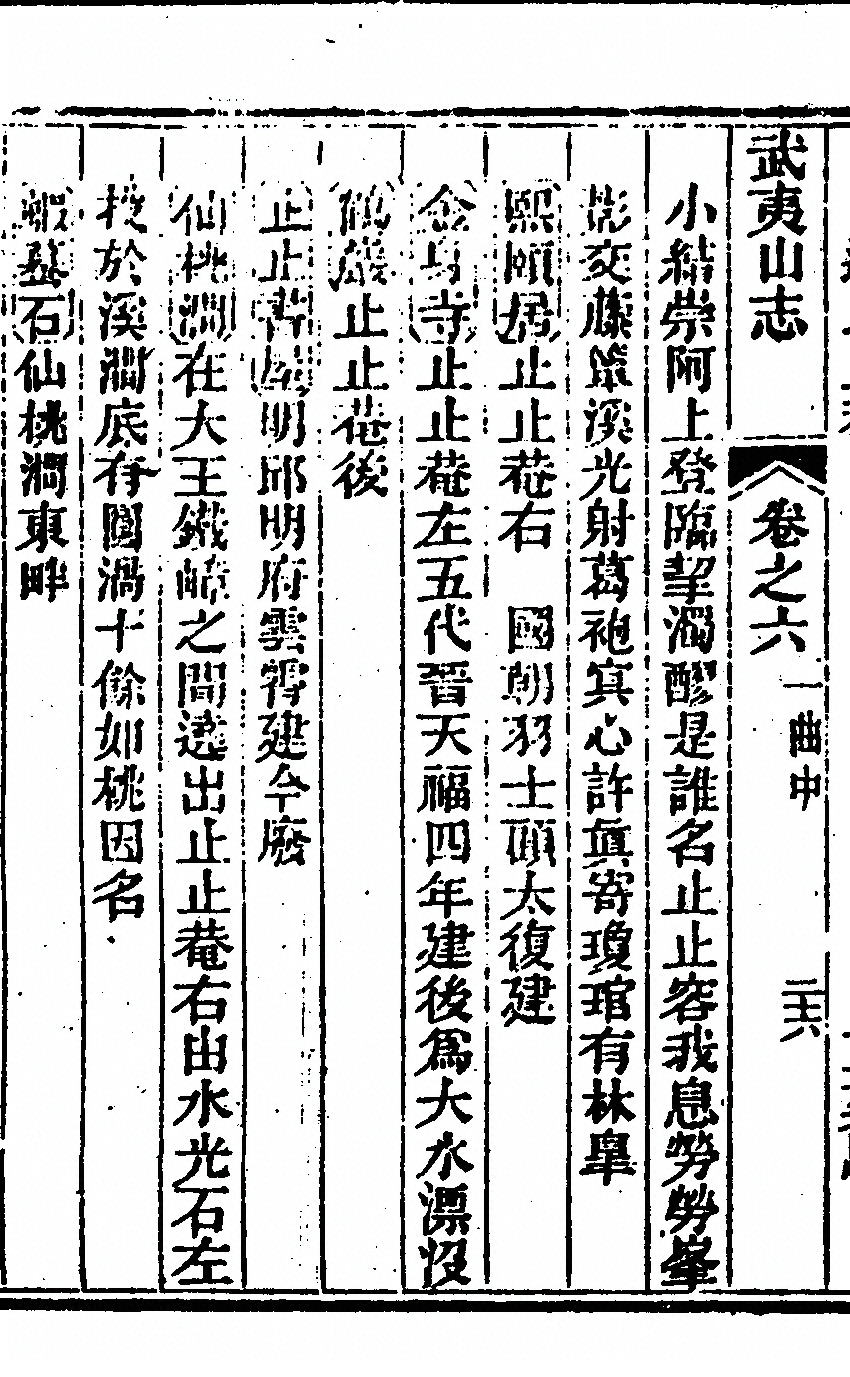 武夷山志 卷之六 一曲中 二十六
小結崇阿上登臨挈濁醪是誰名止止容我息勞勞峯
影交藤簟溪光射葛袍寘心許眞寄瓊琯有林臯
熙頤居止止菴右 國朝羽士頤太復建
金身寺止止菴左五代晉天福四年建後爲大水漂沒
鶴巖止止菴後
止止書屋明邱明府雲霄建今廢
仙桃澗在大王鐵嶂之間遶出止止菴右由水光石左
投於溪澗底有圓渦十餘如桃因名
石仙桃澗東畔